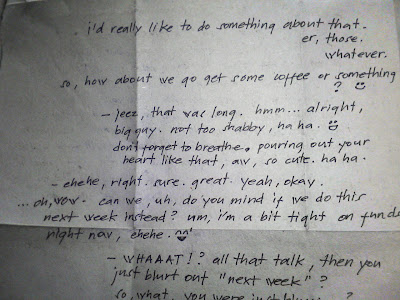 i'd really like to do something about that.
er, those.
whatever.
so, how about we go get some coffee or something
? ☺
- jeez, that was long. hmm... alright,
big guy. not too shabby, ha ha. ☺
don't forget to breathe. pouring out your
heart like that, aw, so cute. ha ha.
- ehehe, right. sure. great. yeah, okay.
... oh, wow. can we, uh, do you mind if we do this
next week instead? um, i'm a bit tight on funds
right now, ehehe. ^^'
- WHAAAT!? all that talk, then you
just blurt out "next week"?
so, what, you were just